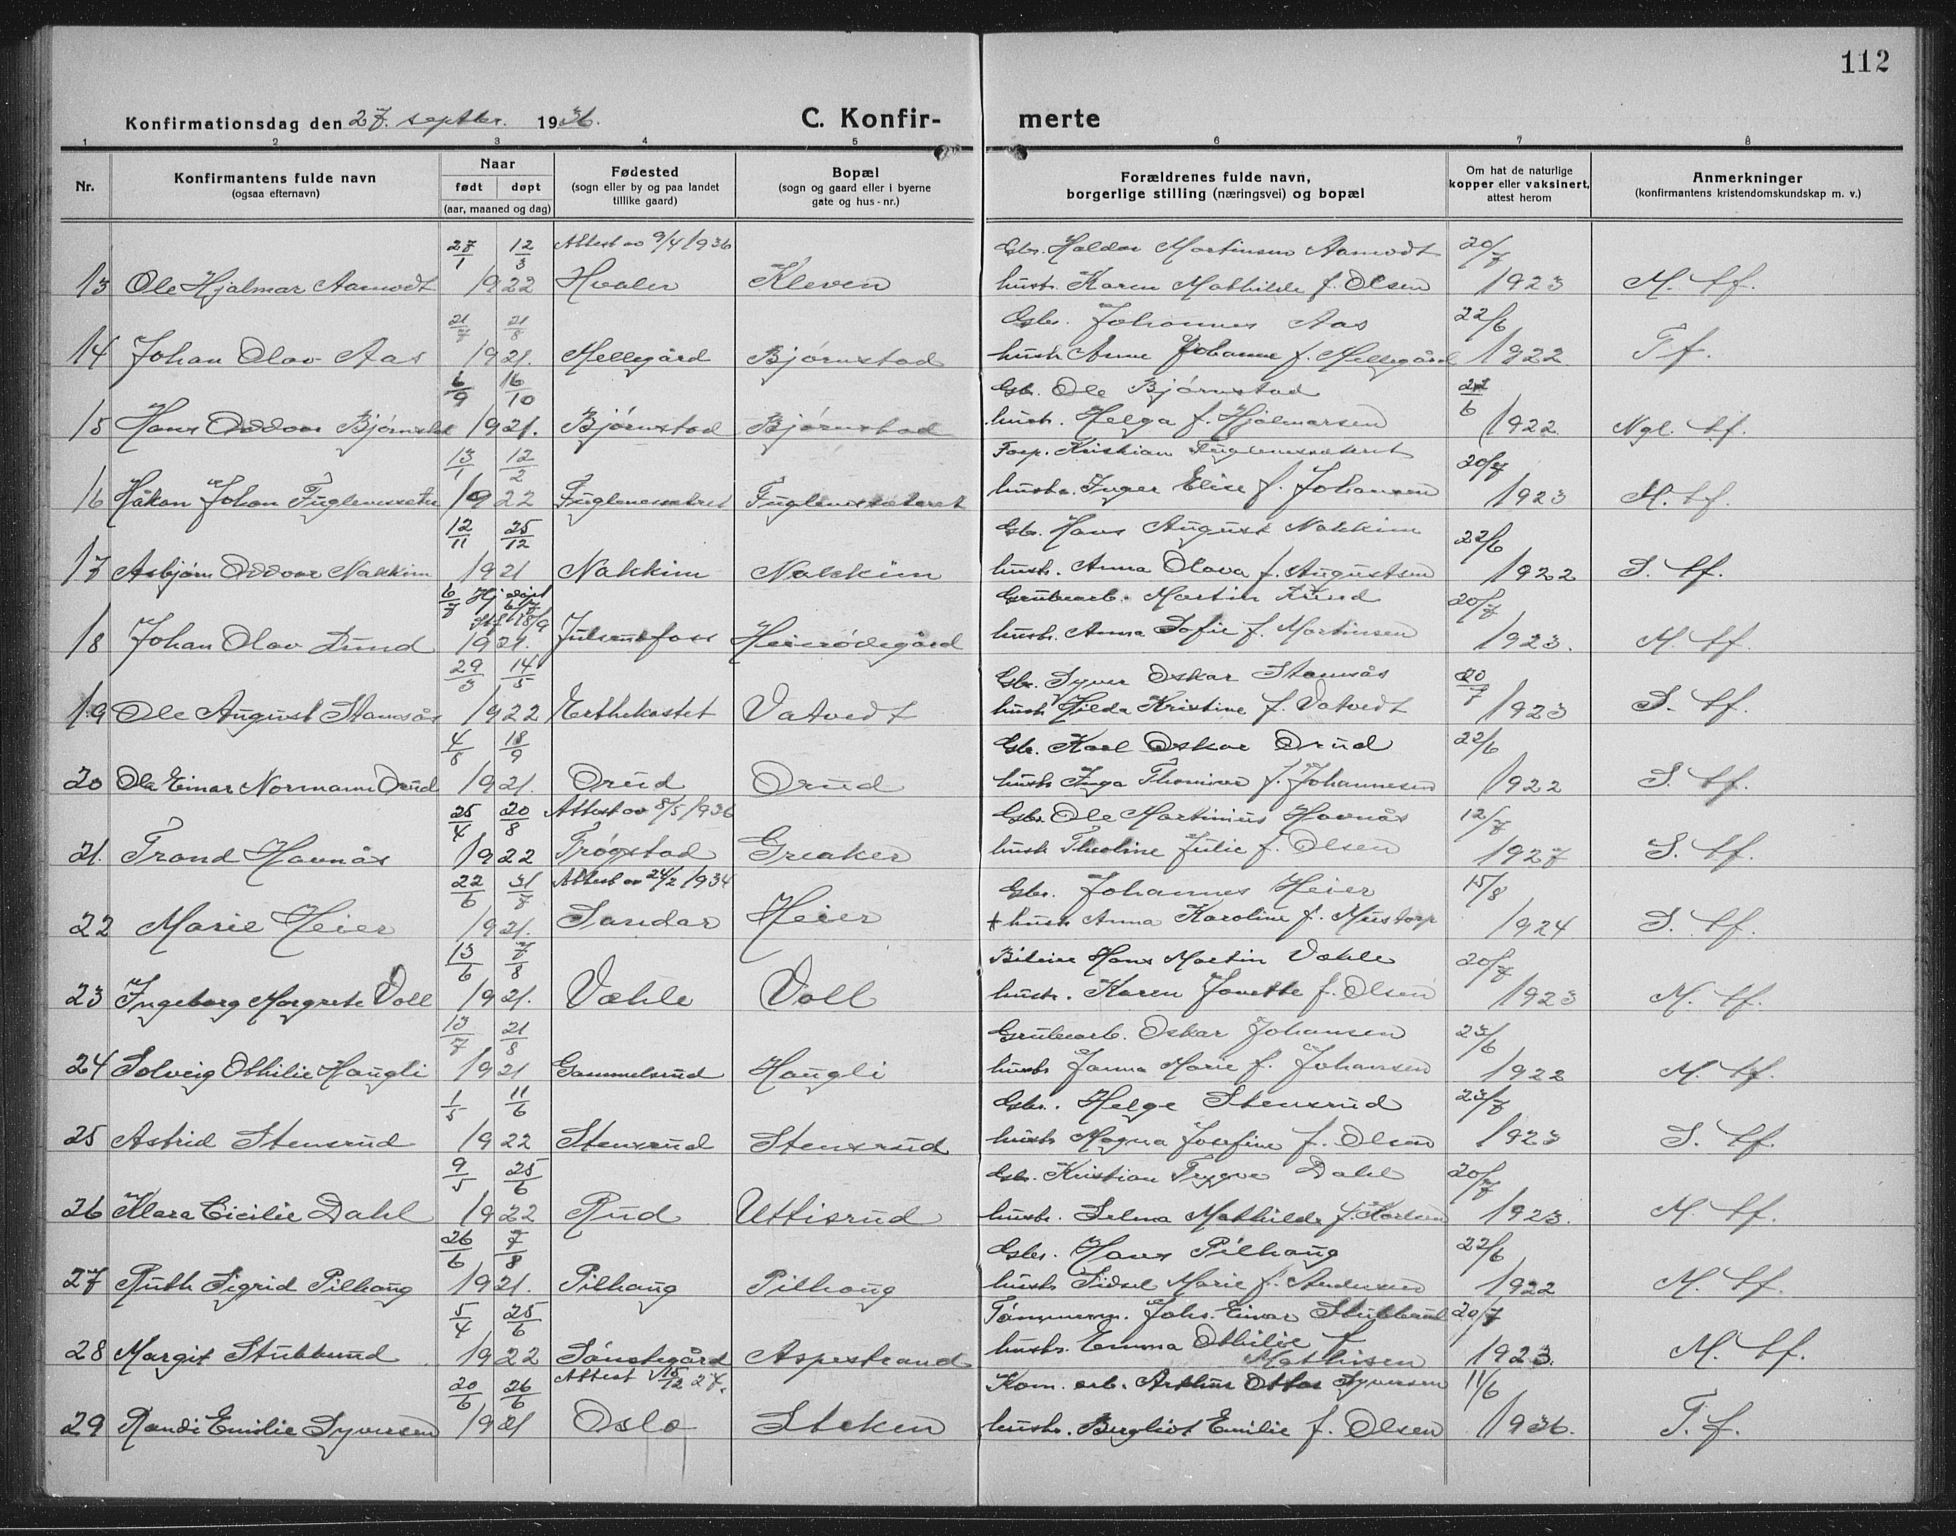 112
Konfirmationsdag den 27. septbr. 1936. C. Konfirmerte
1 2 3 4 5 6 7 8
Nr.
Konfirmantens fulde navn
(ogsaa efternavn)
Naar
født døpt
(aar, maaned og dag)
Fødested
(sogn eller by og paa landet
tillike gaard)
Bopæl
(sogn og gaard eller i byerne
gate og hus-nr.)
Forældrenes fulde navn,
borgerlige stilling (næringsvei) og bopæl
Om hat de naturlige
kopper eller vaksinert,
attest herom
Anmerkninger
(konfirmantens kristendomskundskap m. v.)
27/1 12/3 Attest av 9/4 1936 Gbr. Haldor Martinsen Aamodt 20/7
13 Ole Hjalmar Aamodt 1922 Hvaler Kleven hustr. Karen Mathilde f. Olsen 1923 M. tf.
21/7 21/8 Gbr. Johannes Aas 22/6
14 Johan Olav Aas 1921. Mellegård Bjørnstad hustr. Anne Johanne f. Mellegård 1922 T f.
6/9 16/10 Gbr. Ole Bjørnstad 22/6
15 Hans Oddvar Bjørnstad 1921. Bjørnstad Bjørnstad hustr. Helga f. Hjalmarsen 1922 Ngl. tf.
13/1 12/2 Forp. Kristian Fuglenesseteret 20/7
16 Håkon Johan Fuglenessetre 1922 Fuglenessetret Fuglenesseteret hustr. Inger Elise f. Johansen 1923 M. tf.
12/11 25/12 Gbr. Hans August Nakkim 22/6
17 Asbjørn Oddvar Nakkim 1921 Nakkim Nakkim hustr. Anna Olava f. Augustsen 1922 S. tf.
6/7 Hj.døpt 6/7 Grubearb. Martin Lund 20/7
Stf. 18/9
18 Johan Olav Lund 1921. Julsrudfoss Heierødegård hustr. Anna Sofie f. Martinsen 1923. M. tf.
29/3 14/5 Gbr. Syver Oskar Stamsås 20/7
19 Ole August Stamsås 1922 Erthekastet Vatvedt hustr. Hilda Kristine f. Vatvedt 1923 S. tf.
4/8 18/9 Gbr. Karl Oskar Orud 22/6
20 Ole Einar Normann Orud 1921. Orud Orud hustr. Inga Thomine f. Johannesen 1922 S. tf.
25/4 20/8 Attest av 8/5 1936 Gbr. Ole Martinius Havnås 12/7
21. Trond Havnås 1922 Trøgstad Greaker hustr. Theoline Julie f. Olsen 1927 S. tf.
22/6 31/7 Attest av 24/2 1934 Gbr. Johannes Heier 15/8
22 Marie Heier 1921. Sandar Heier + hustr. Anna Karoline f. Mustorp 1924 S. tf.
13/6 7/8 Bileier Hans Martin Vahle 20/7
23 Ingeborg Margrete Voll 1921. Væhle Voll hustr. Karen Janette f. Olsen 1923 M. tf.
13/7 21/8 Grubearb. Oskar Johansen 23/6
24 Solveig Othilie Haugli 1921 Gammelsrud Haugli hustr. Janna Marie f. Johansen 1922 M. tf.
1/5 11/6 Gbr. Helge Stensrud 23/7
25 Astrid Stensrud 1922 Stensrud Stensrud hustr. Magna Josefine f. Olsen 1923 S. tf.
9/5 25/6 Gbr. Kristian Trygve Dahl 20/7
26 Klara Cicilie Dahl 1922 Rud Uttisrud hustr. Selma Mathilde f. Karlsen 1923. M. tf.
26/6 7/8 Gbr. Hans Pilhaug 22/6
27 Ruth Sigrid Pilhaug 1921. Pilhaug Pilhaug hustr. Sidsel Marie f. Andersen 1922 M. tf.
5/4 25/6 Tømmerm. Johs. Einar Stubberud 20/7
28 Margit Stubberud 1922 Sønstegård Aspestrand hustr. Emma Othilie f. Mathisen 1923. M. tf.
20/6 26/6 Attest 15/12 27. Kom. arb. Arthur Ottar Syversen 11/6
29 Randi Emilie Syversen 1921 Oslo Steken hustr. Bergliot Emilie f. Olsen 1936. T. f.